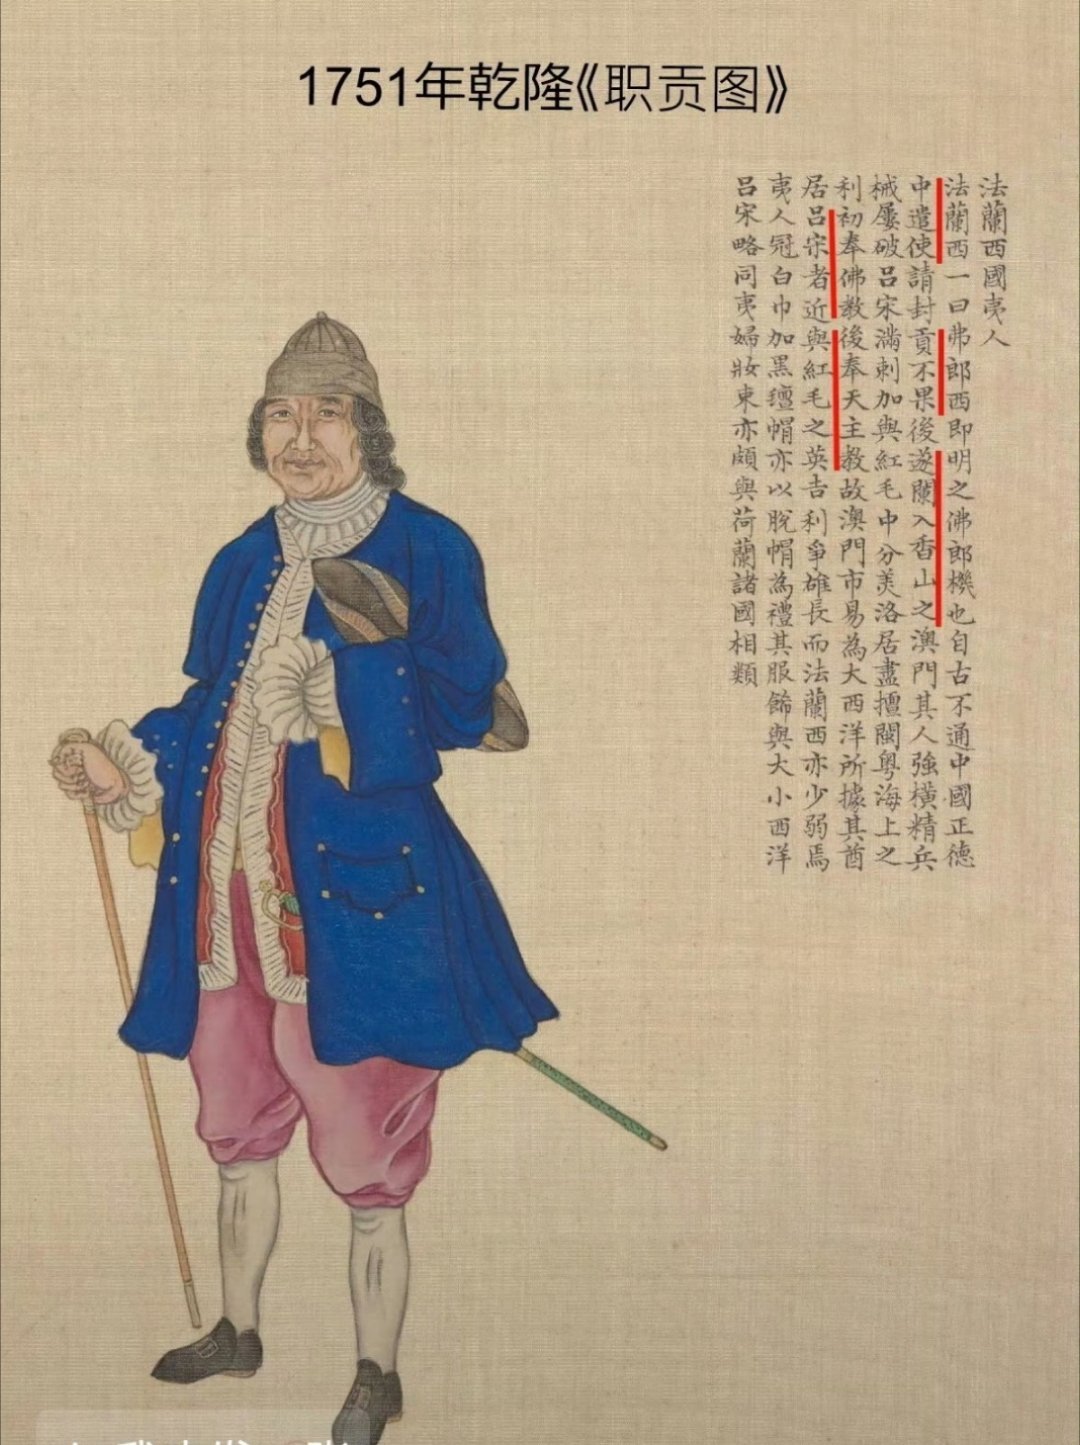 1751年乾隆《职贡图》
法蘭西國夷人
法蘭西一曰弗郎西即明之佛郎機也自古不通中國正德
中遣使請封貢不果後遂闌入香山之澳門其人強橫精兵
械屢破呂宋滿刺加與紅毛中分美洛居盡擅閩粤海上之
利初奉佛教後奉天主教故澳門市易為大西洋所據其酋
居呂宋者近與紅毛之英吉利爭雄長而法蘭西亦少弱焉
夷人冠白巾加黑氊帽亦以脫帽為禮其服飾與大小西洋
呂宋略同夷婦妝束亦頗與荷蘭諸國相類